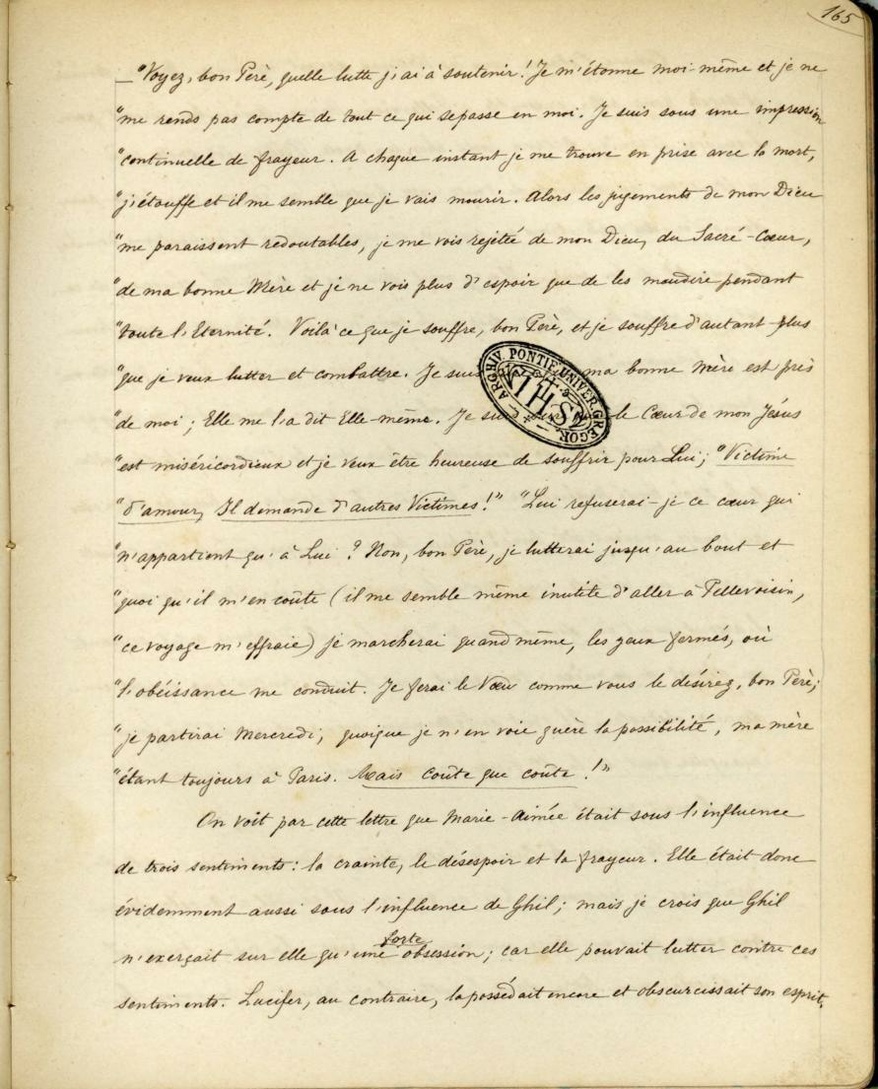 165
— "Voyez, bon Père, quelle lutte j'ai à soutenir! Je m'étonne moi-même et je ne
"me rends pas compte de tout ce qui se passe en moi. Je suis sous une impression
"continuelle de frayeur. A chaque instant je me trouve en prise avec la mort,
"j'étouffe et il me semble que je vais mourir. Alors les jugements de mon Dieu
"me paraissent redoutables, je me vois rejetté de mon Dieu, du Sacré-Cœur,
"de ma bonne Mère et je ne vois plus d'espoir que de les maudire pendant
"toute l'Eternité. Voilà ce que je souffre, bon Père, et je souffre d'autant plus
"que je veux lutter et combattre. Je suis ma bonne Mère est près
"de moi; Elle me l'a dit Elle-même. Je suis le Cœur de mon Jésus
"est miséricordieux et je veux être heureuse de souffrir pour Lui; "Victime
"d'amour, Il demande d'autres Victimes!" "Lui refuserai-je ce cœur qui
"n'appartient qu'à Lui? Non, bon Père, je lutterai jusqu'au bout et
"quoi qu'il m'en coûte (il me semble même inutile d'aller à Pellevoisin,
"ce voyage m'effraie) je marcherai quand même, les yeux fermés, où
"l'obéissance me conduit. Je ferai le Vœu comme vous le désirez, bon Père;
"je partirai Mercredi, quoique je n'en voie guère la possibilité, ma mère
"étant toujours à Paris. Mais coûte que coûte!"
On voit par cette lettre que Marie-Aimée était sous l'influence
de trois sentiments: la crainte, le désespoir et la frayeur. Elle était donc
évidemment aussi sous l'influence de Ghil; mais je crois que Ghil
n'exerçait sur elle qu'une forte obsession; car elle pouvait lutter contre ces
sentiments. Lucifer, au contraire, la possédait encore et obscurcissait son esprit,
ARCHIV. PONTIF. UNIVER. GREGOR.
IHS